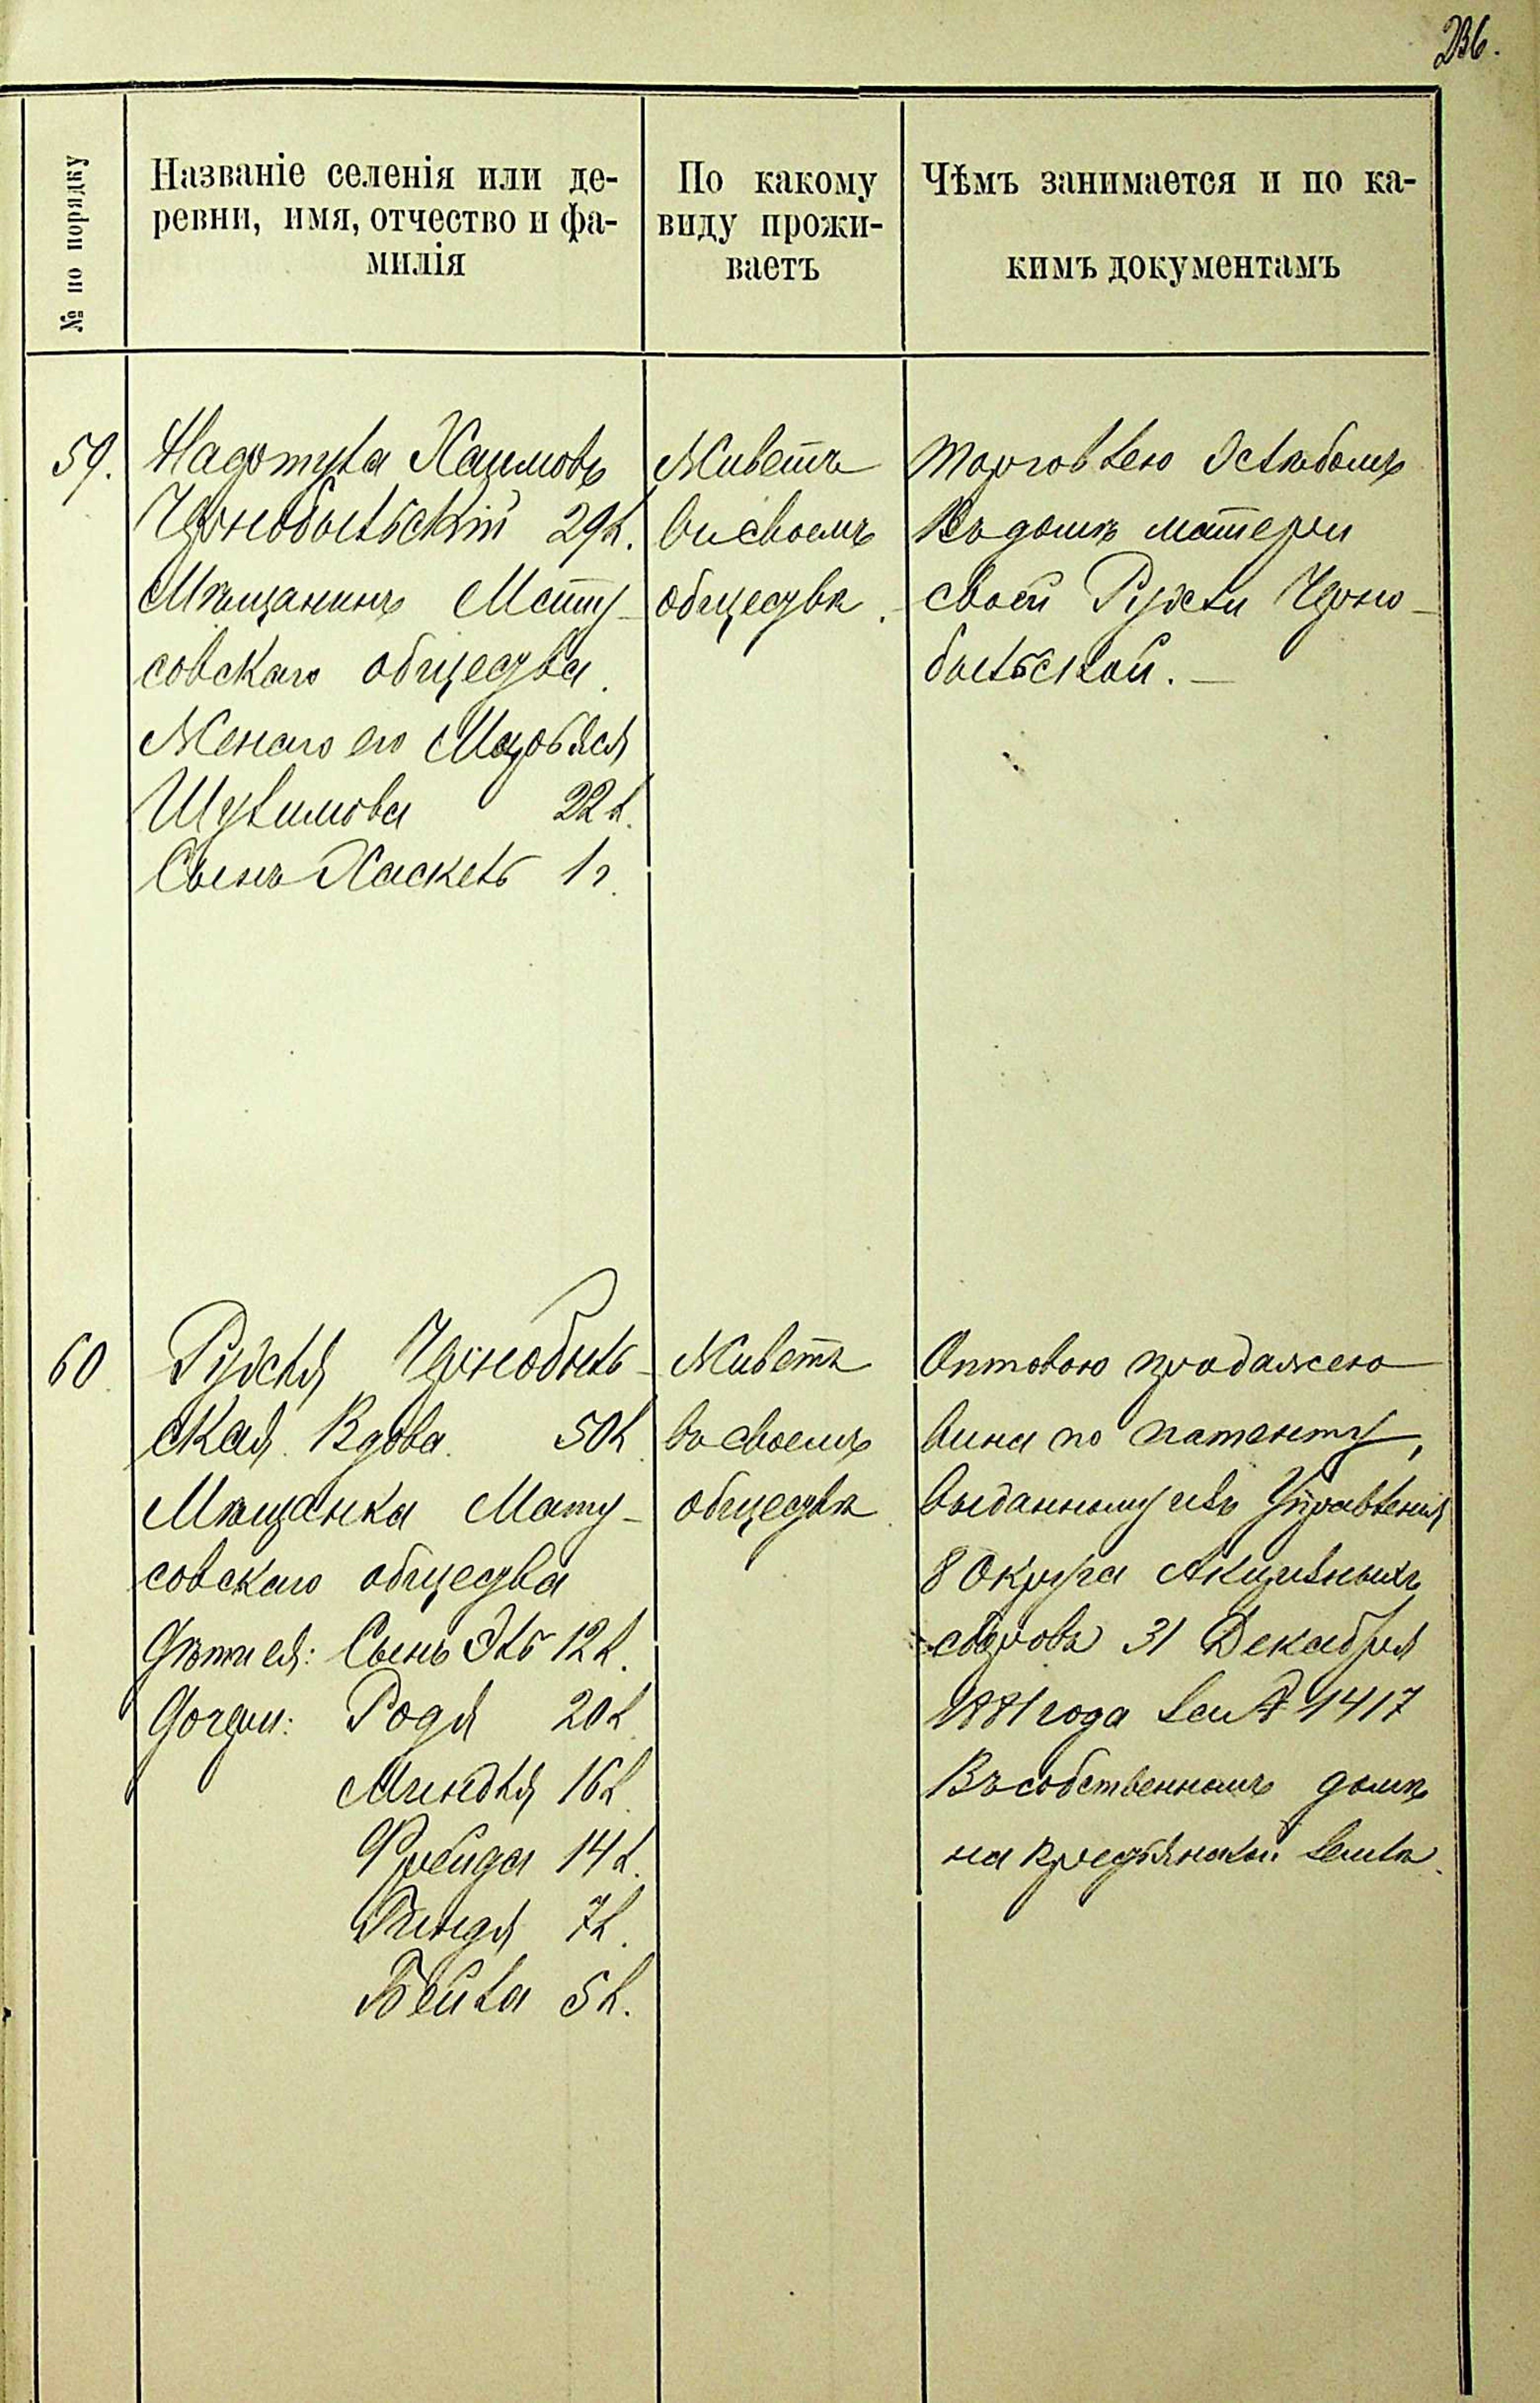 236.
№ по порядку
Названіе селенія или де-
ревни, имя, отчество и фа-
милія
По какому
виду прожи-
ваетъ
Чѣмъ занимается и по ка-
кимъ документамъ
59.
Хаимовъ
Чернобыльскій 29 л.
Мѣщанинъ Мату-
совскаго общества.
его
22 л.
Сынъ Хаскель 1 г.
Живетъ
въ своемъ
обществѣ.
Торговлею хлѣбомъ
Въ домѣ матери
своей Рухли Черно-
быльской. —
60
Рухля Чернобыль-
ская Вдова. 50 л
Мѣщанка Мату-
совскаго общества
Дѣти ея: Сынъ Эль 12 л.
Дочери: Родя 20 л
Миндля 16 л
Фрейда 14 л.
7 л.
Бейла 5 л.
Живетъ
въ своемъ
обществѣ
Оптовою продажею
вина по патенту,
выданному изъ Управленія
8 Округа Акцизныхъ
сборовъ 31 Декабря
1881 года за № 1417
Въ собственномъ домѣ
на крестьянской землѣ.